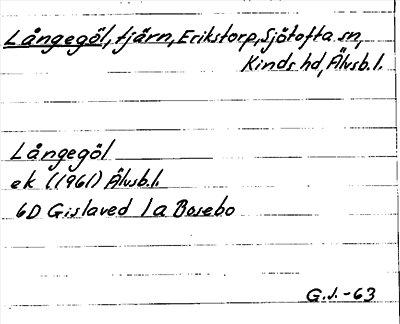 Långegöl, tjärn, Erikstorp, Sjötofta sn,
Kinds hd, Älvsb. l.
Långegöl
ek (1961) Älvsb. l.
6D Gislaved 1a Bosebo
G.J. -63